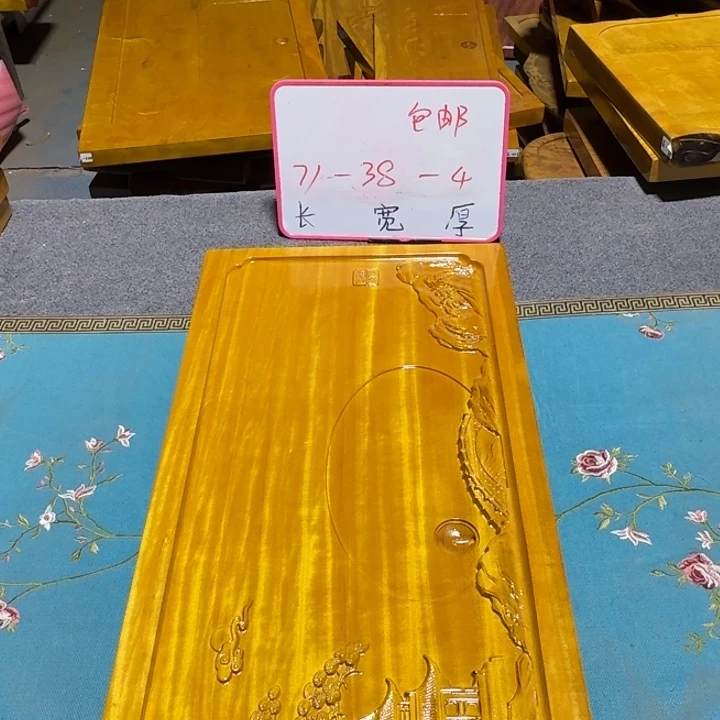 包邮
71-38-4
长 宽 厚